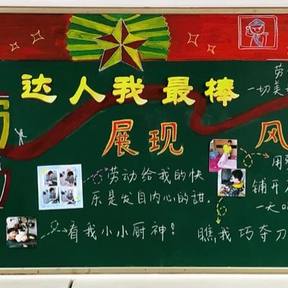 达人我最棒
展现
风
劳
一切美
劳动给我的快
乐是发自内心的甜.
用
铺开
一大
看我小小厨神！
瞧我巧夺刀